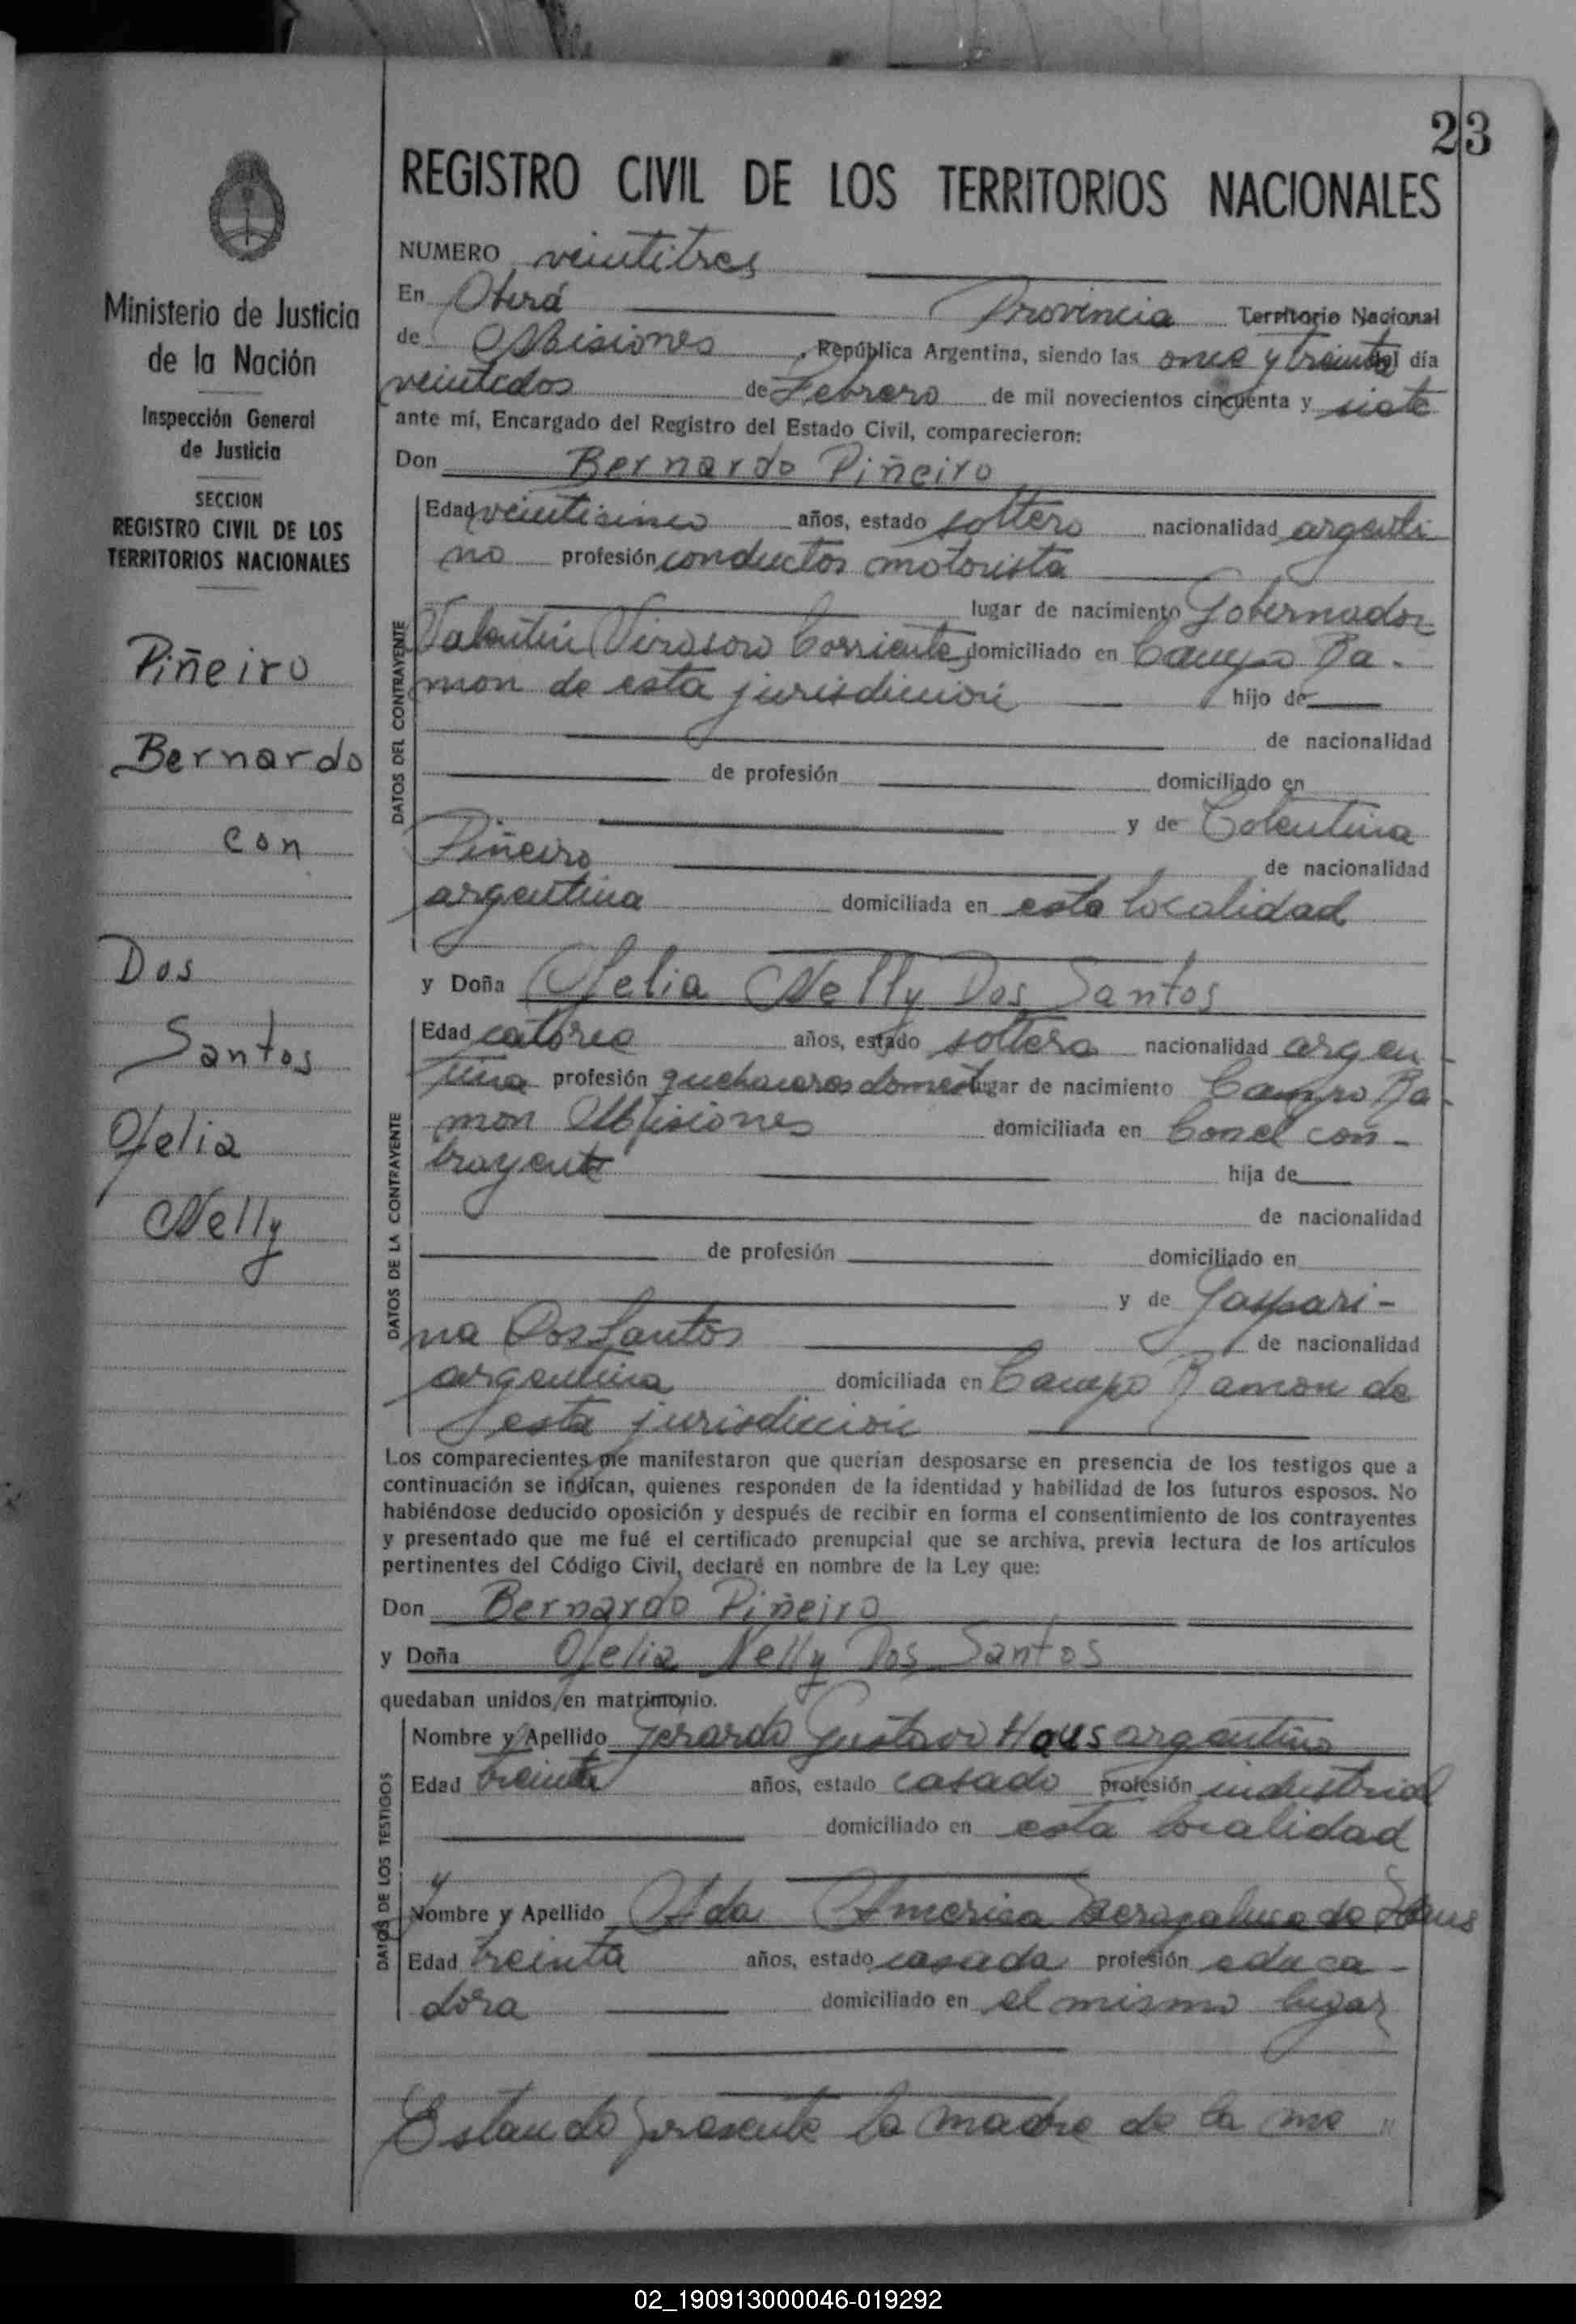 23
REGISTRO CIVIL DE LOS TERRITORIOS NACIONALES
Ministerio de Justicia
de la Nación
Inspección General
de Justicia
SECCION
REGISTRO CIVIL DE LOS
TERRITORIOS NACIONALES
Piñeiro
Bernardo
con
Dos
Santos
Ofelia
Nelly
NUMERO veintitres
En Oberá Provincia Territorio Nacional
de Misiones, República Argentina, siendo las once y treinta del día
veintidos de Febrero de mil novecientos cincuenta y siete
ante mí, Encargado del Registro del Estado Civil, comparecieron:
Don Bernardo Piñeiro
DATOS DEL CONTRAYENTE
Edad veinticinco años, estado soltero nacionalidad argenti
no profesión conductor motorista
lugar de nacimiento Gobernador
Valentin Virasoro Corrientes domiciliado en Campo Ra-
mon de esta jurisdiccion hijo de
de nacionalidad
de profesión domiciliado en
y de Colentina
Piñeiro de nacionalidad
argentina domiciliada en esta localidad
y Doña Ofelia Nelly Dos Santos
DATOS DE LA CONTRAYENTE
Edad catorce años, estado soltera nacionalidad argen-
tina profesión quehaceres domest lugar de nacimiento Campo Ra-
mon Misiones domiciliada en Con el con-
trayente hija de
de nacionalidad
de profesión domiciliado en
y de Gaspari-
na Dos Santos de nacionalidad
argentina domiciliada en Campo Ramon de
esta jurisdiccion
Los comparecientes me manifestaron que querían desposarse en presencia de los testigos que a
continuación se indican, quienes responden de la identidad y habilidad de los futuros esposos. No
habiéndose deducido oposición y después de recibir en forma el consentimiento de los contrayentes
y presentado que me fué el certificado prenupcial que se archiva, previa lectura de los artículos
pertinentes del Código Civil, declaré en nombre de la Ley que:
Don Bernardo Piñeiro
y Doña Ofelia Nelly Dos Santos
quedaban unidos en matrimonio.
DATOS DE LOS TESTIGOS
Nombre y Apellido Gerardo Gustavo Haus argentino
Edad treinta años, estado casado profesión industrial
domiciliado en esta localidad
y
Nombre y Apellido Ada America de Haus
Edad treinta años, estado casada profesión educa-
dora domiciliado en el mismo lugar
Estando presente la madre de la me"
02_190913000046-019292